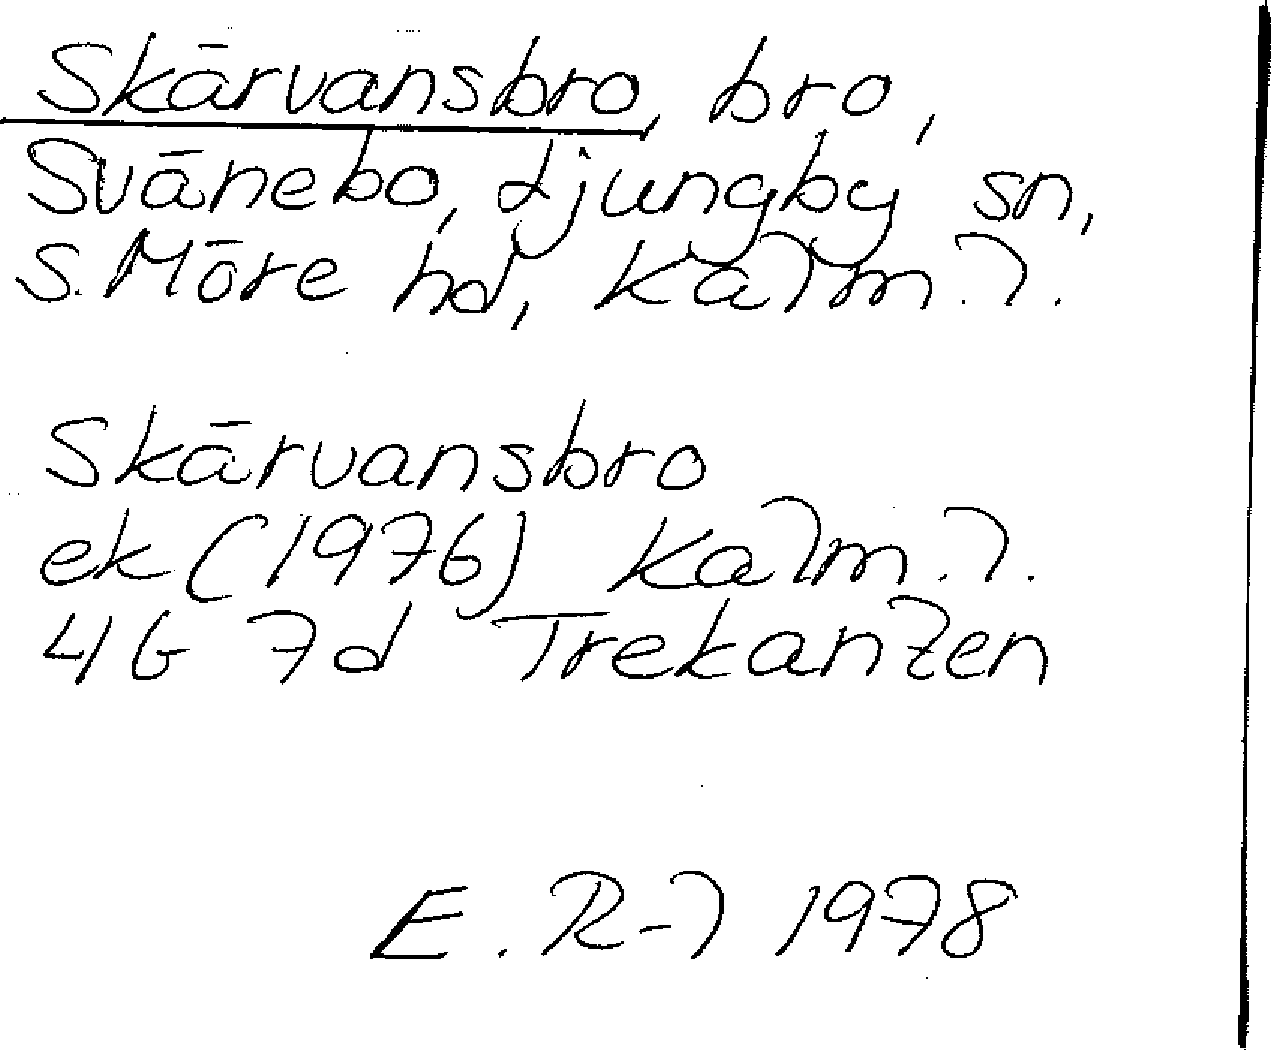 Skärvansbro, bro,
Svänebo, Ljungby sn,
S. Möre hd, Kalm. l.
Skärvansbro
ek (1976) Kalm. l.
4G 7d Trekanten
E. R-l 1978